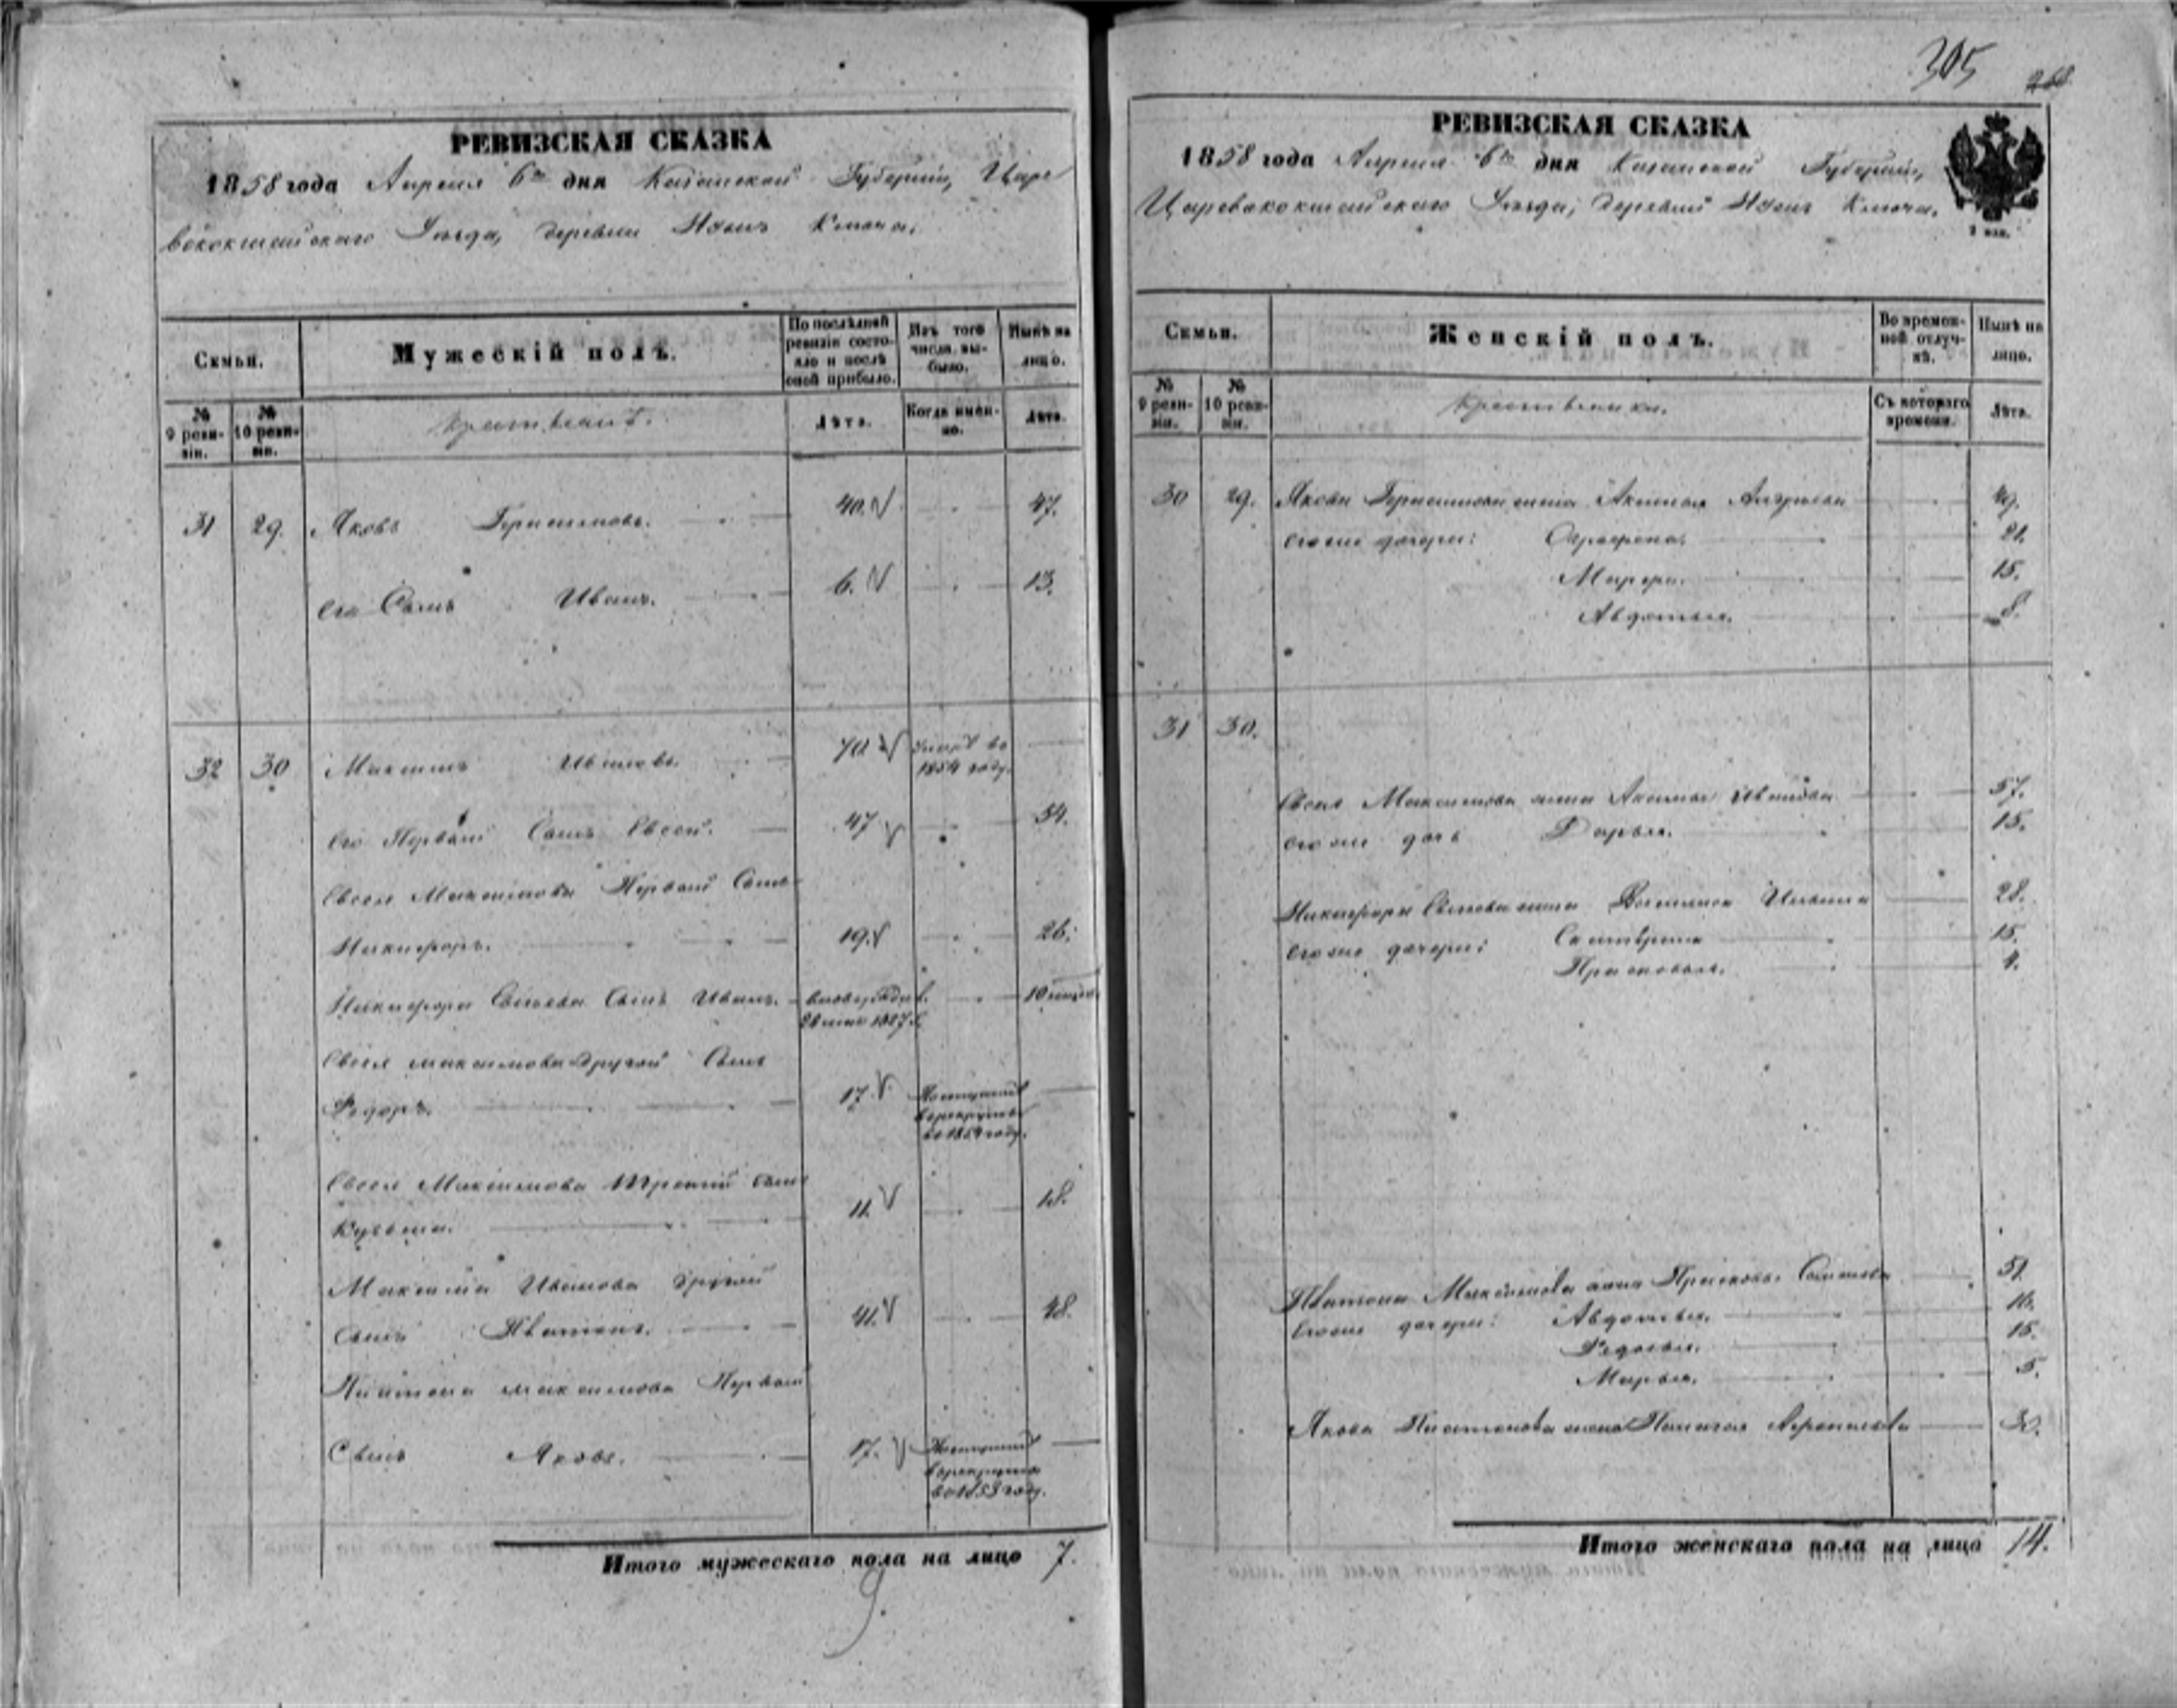 305
РЕВИЗСКАЯ СКАЗКА
1858 года Апреля 6го дня Казанской Губерніи, Царе
вококшайскаго Уѣзда, деревни Ключа.
Семьи.
Мужескій полъ.
По послѣдней ревизіи состояло и послѣ оной прибыло.
Изъ того числа выбыло.
Нынѣ на лицо.
№ 9 ревизіи.
№ 10 ревизіи.
Крестьянъ.
Лѣта.
Когда именно.
Лѣта.
31 29. Яковъ Герасимовъ. 40. 47.
его Сынъ Иванъ. 6. 13.
32 30 Максимъ Ивановъ. 70 умеръ въ 1854 году.
Его Первый Сынъ Евсей. 47 54.
Евсея Максимова Первый Сынъ
Никифоръ. 19. 26.
Никифора Евсеева Сынъ Иванъ. 10
Евсея максимова другой Сынъ
Федоръ. 17. Поступилъ в рекруты
Евсея Максимова третий сынъ
Кузьма. 11. 18.
Максима Иванова другой
Сынъ Платонъ. 41. 48.
Платона максимова Первый
Сынъ Яковъ. 17. Поступилъ в рекруты в 1853 году.
Итого мужескаго пола на лицо 7.
9.
РЕВИЗСКАЯ СКАЗКА
1858 года Апреля 6го дня Казанской Губерніи,
Царевококшайскаго Уѣзда, деревни Ключа.
Семьи.
Женскій полъ.
Во временной отлучкѣ.
Нынѣ на лицо.
№ 9 ревизіи.
№ 10 ревизіи.
Крестьянки.
Съ котораго времени.
Лѣта.
30 29. Якова Герасимова жена Андреева 49.
его же дочери: 21.
15.
Авдотья. 8.
31 30.
Евсея Максимова жена Иванова 57.
его же дочь Дарья. 15.
Никифора Евсеева жена 28.
его же дочери: Екатерина 15.
Прасковья. 4.
Платона Максимова жена Прасковья 51
Его же дочери: Авдотья. 16.
Федосья. 15.
Марья. 5.
Якова Платонова жена 30.
Итого женскаго пола на лицо 14.